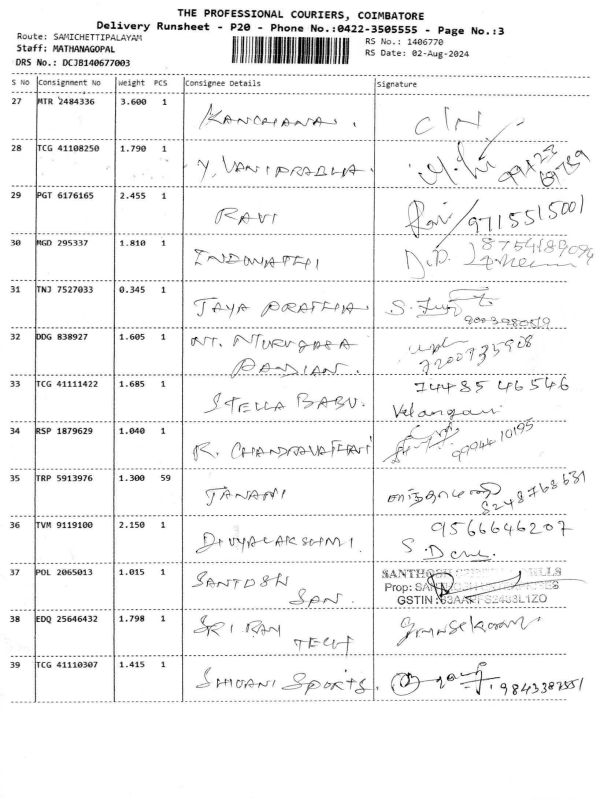 THE PROFESSIONAL COURIERS, COIMBATORE
Delivery Runsheet - P20 - Phone No.:0422-3505555 - Page No.:3
Route: SAMICHETTIPALAYAM
RS No.: 1406770
Staff: MATHANAGOPAL
RS Date: 02-Aug-2024
DRS No.: DCJB140677003
S No Consignment No Weight PCS Consignee Details Signature
27 MTR 2484336 3.600 1 KANCHANA.
28 TCG 41108250 1.790 1 Y. VANIPRABHA.
29 PGT 6176165 2.455 1 RAVI Ravi/9715515001
30 MGD 295337 1.810 1 INDUMATHI
31 TNJ 7527033 0.345 1 JAYA PRATHA.
32 DDG 838927 1.605 1 NT. MURUGASA
PANDIAN. 7200935908
33 TCG 41111422 1.685 1 STELLA BABU. 74485 46546
Velangani
34 RSP 1879629 1.040 1 R. CHANDRAVATHAVI 9994410195
35 TRP 5913976 1.300 59 JANANI 8248768631
36 TVM 9119100 2.150 1 DIVYALAKSHMI. 9566646207
37 POL 2065013 1.015 1 SANTOSH
SPN.
SANTHOSH
Prop:
GSTIN :
38 EDQ 25646432 1.798 1 SRI RAM
TECH Gunasekaran
39 TCG 41110307 1.415 1 SHIVANI SPORTS.